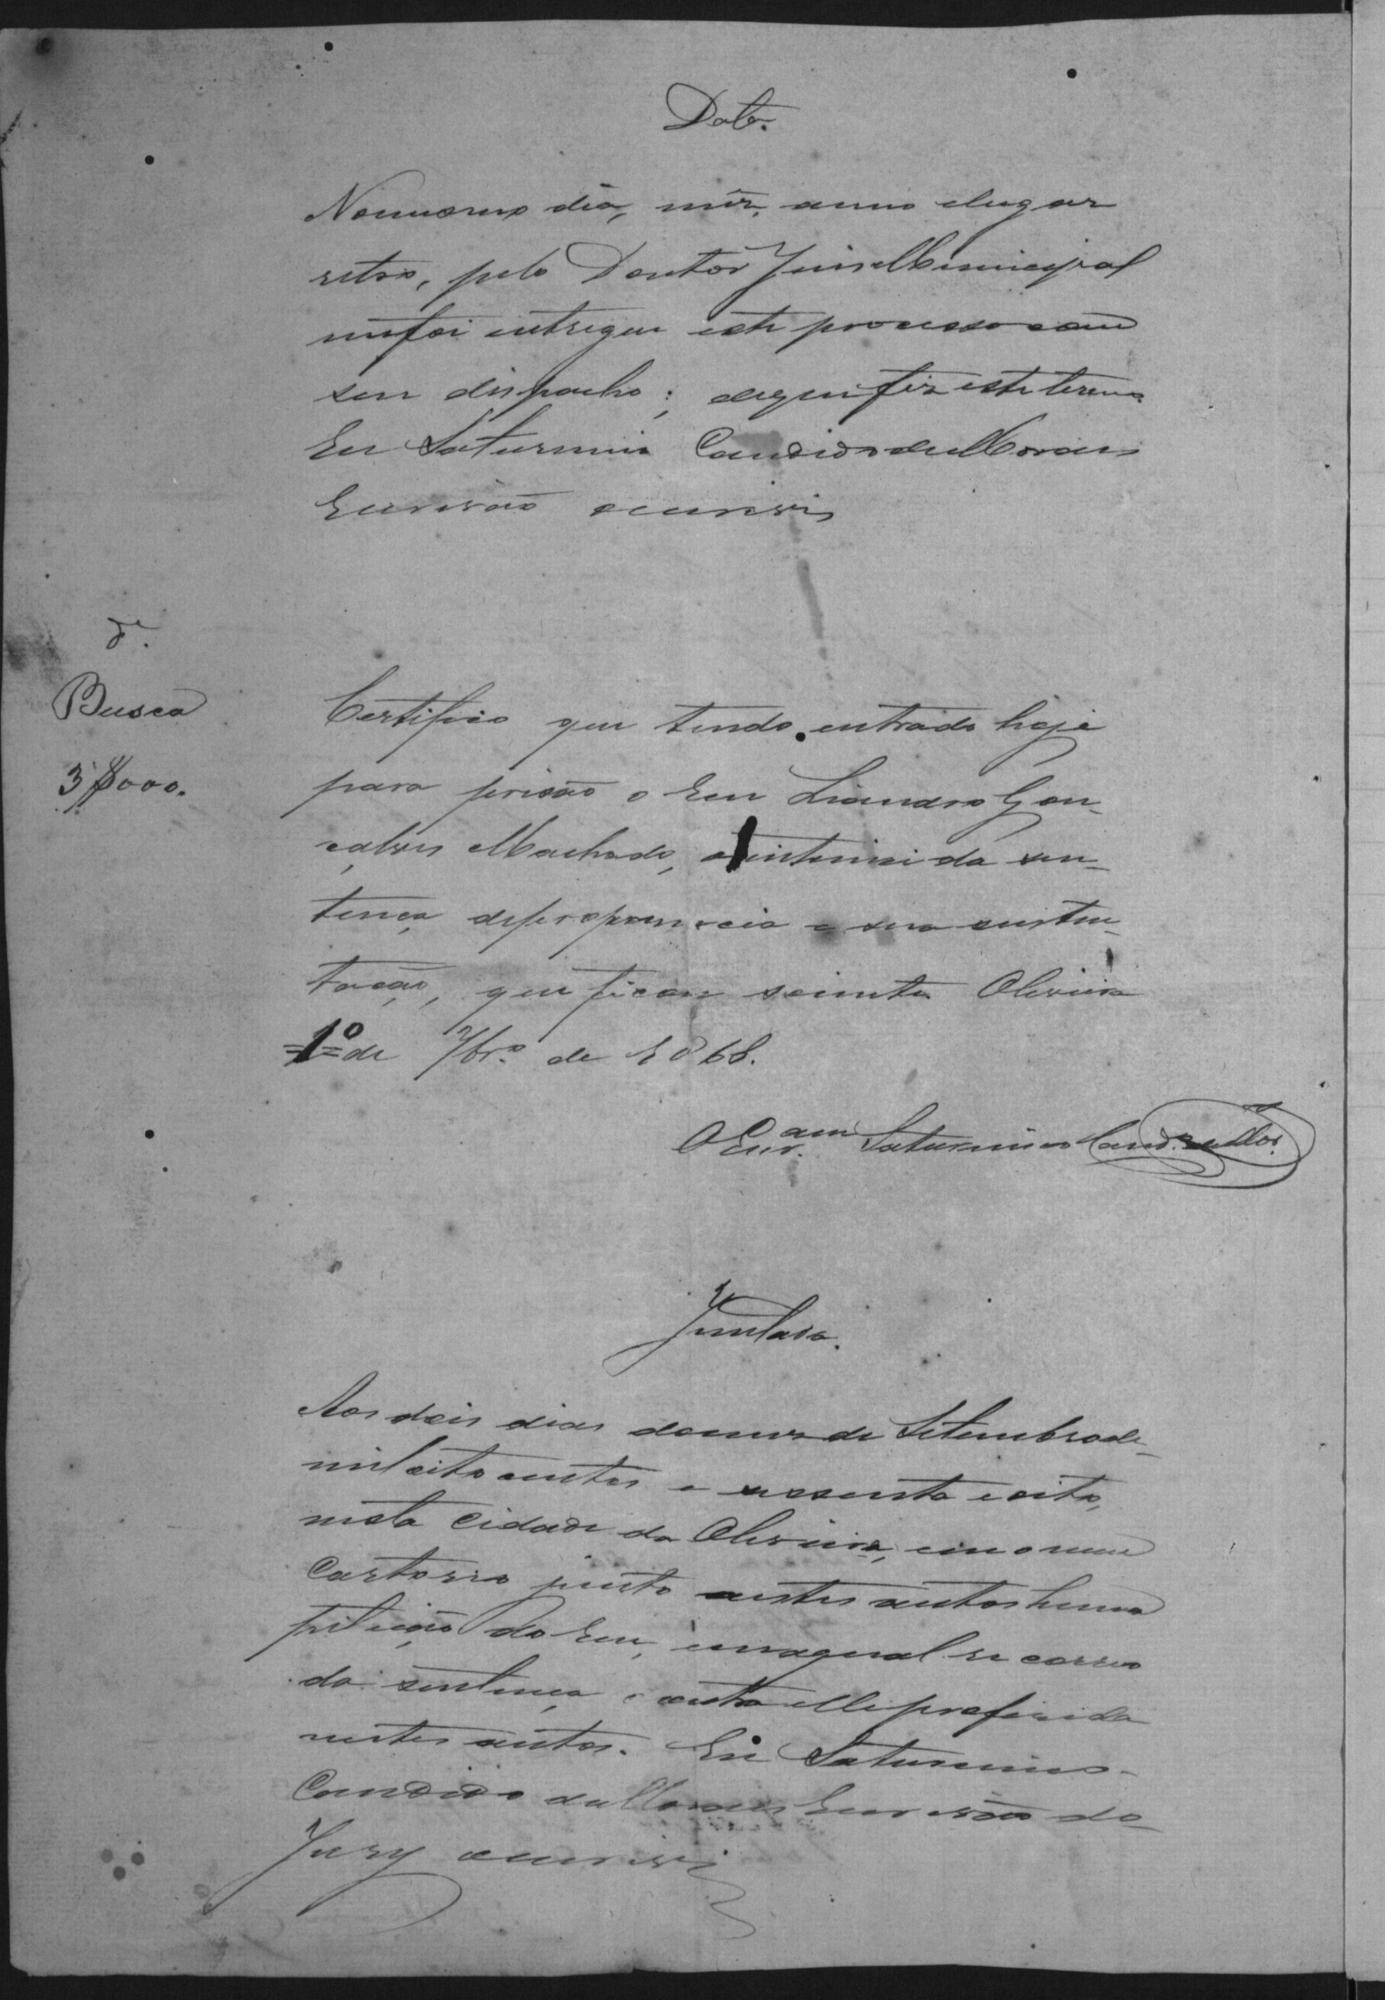 Data.
No mesmo dia, mez, anno elugar
retro, pelo Doutor Juis Municipal
mefoi entregue este processo com
seu dispacho; dequefiz este termo
Eu Saturnino Candido de Moraes
Escrivão escrevi
Busca
3$000.
Certifico que tendo entrado hoje
para prisão o Reu Liandro Gon_
çalves Machado, o intimei da sen_
tença depropronuncia e sua susten_
tação, que ficou sciente. Oliveira
=1º= de 7brº de 1868.
O Escr.am Saturnino Cand. de Mor.
Juntada.
Aos dois dias domez de Setembro de_
mil oito centos e sessenta e oito,
nesta Cidade da Oliveira, em o meu
Cartorio junto aestes autos huma
petição do Reu, em aqual re corre
da sentença contra elle proferida
nestes autos. Eu Saturnino_
Candido de Moraes Escrivão do_
Jury escrevi